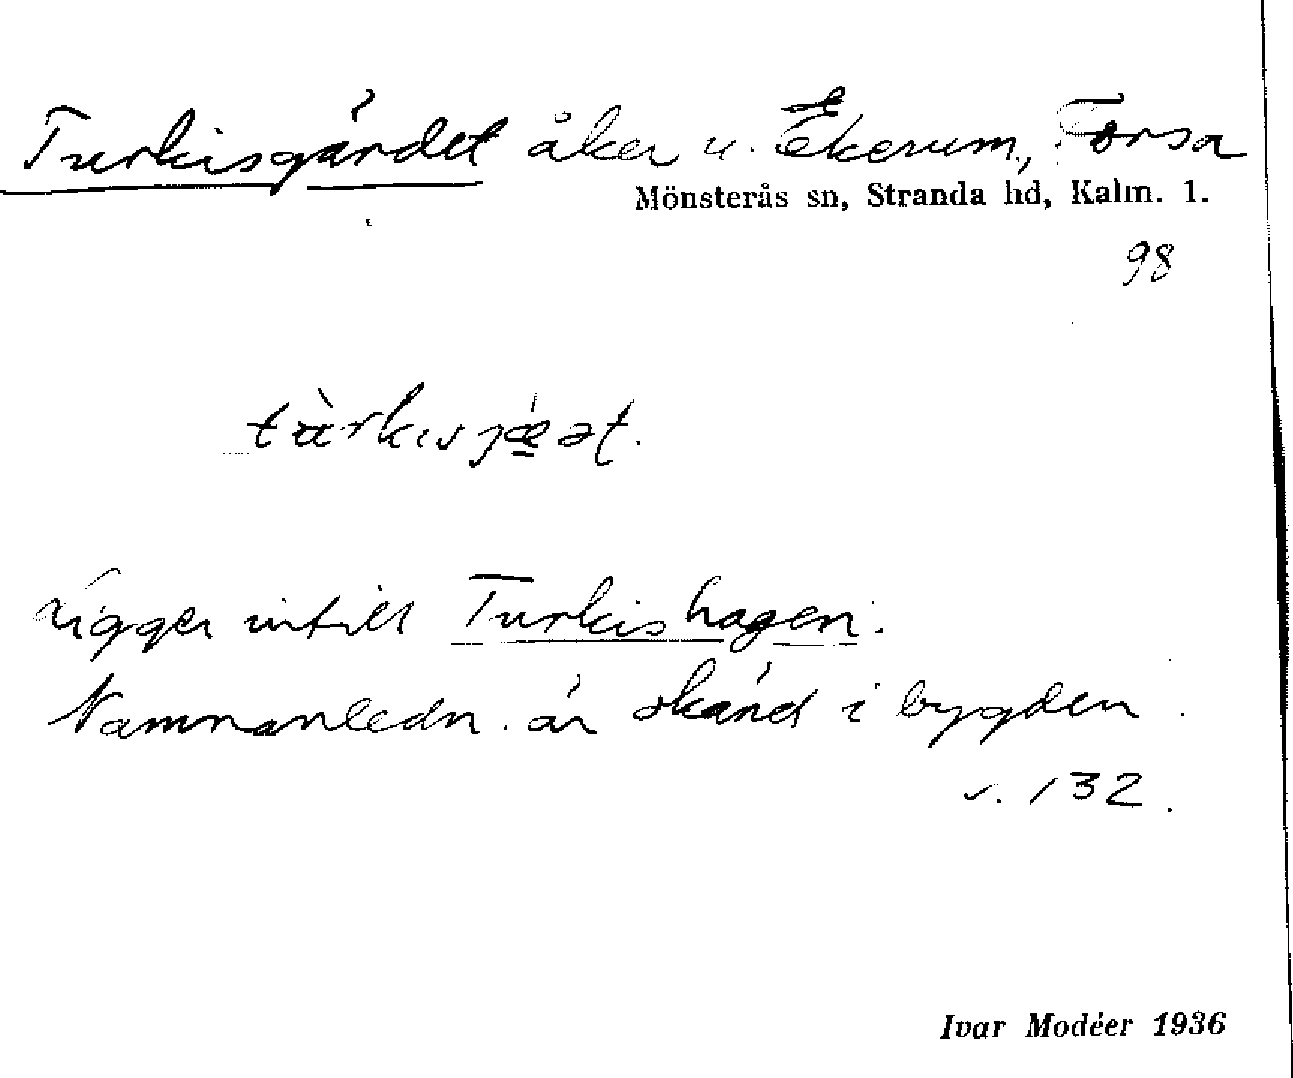 Turkisgärdet åker u. Ekerum, Forsa
Mönsterås sn, Stranda hd, Kalm. l.
98
Ligger intill Turkishagen.
Namnanledn. är okänd i bygden.
s. 132.
Ivar Modéer 1936